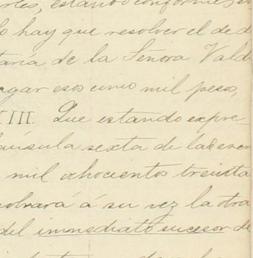 rtes, estando conformes en
lo hay que resolver el de d
taria de la Señora Vald
agar eso cinco mil peso,
XIII. Que estando expre
láusula sexta de la de ven
mil ochocientos treinta
solverá á su vez la otra
del inmediato sucesor de